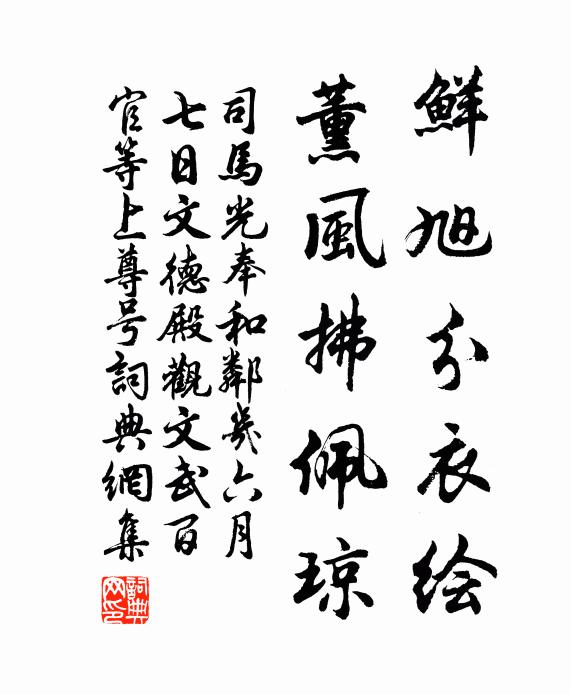 鮮旭分衣绘
薫風拂佩琼
司馬光奉和鄰幾六月
七日文德殿觀文武百
官等上尊号詞典網集
詞典
网印